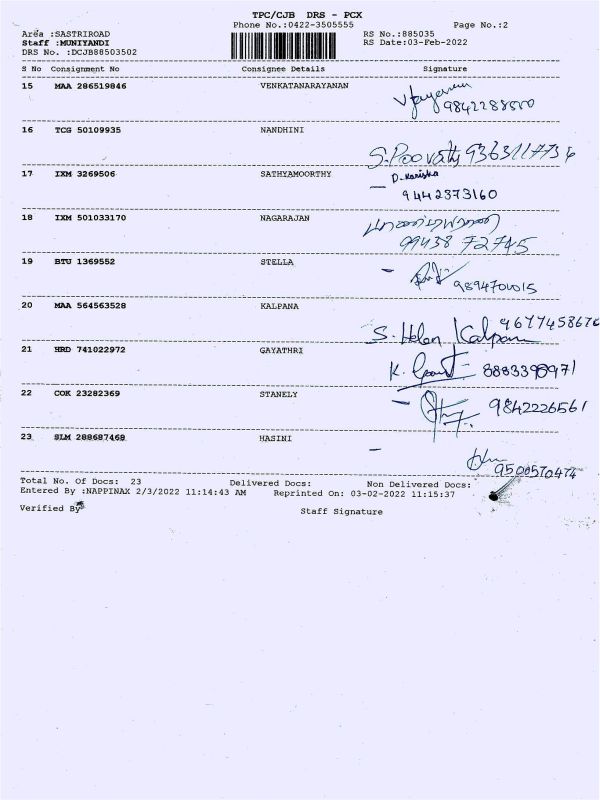 TPC/CJB DRS - PCX
Phone No.:0422-3505555 Page No.:2
Area :SASTRIROAD RS No.:885035
Staff :MUNIYANDI RS Date:03-Feb-2022
DRS No. :DCJB88503502
S No Consignment No Consignee Details Signature
15 MAA 286519846 VENKATANARAYANAN
16 TCG 50109935 NANDHINI
S. Poovathy
17 IXM 3269506 SATHYAMOORTHY
9442373160
18 IXM 501033170 NAGARAJAN
99438 72745
19 BTU 1369552 STELLA
20 MAA 564563528 KALPANA
S. Helen Kalpana
21 HRD 741022972 GAYATHRI
K.
22 COK 23282369 STANELY
9842226561
23 SLM 288687468 HASINI
9500570474
Total No. Of Docs: 23 Delivered Docs: Non Delivered Docs:
Entered By :NAPPINAX 2/3/2022 11:14:43 AM Reprinted On: 03-02-2022 11:15:37
Verified By Staff Signature